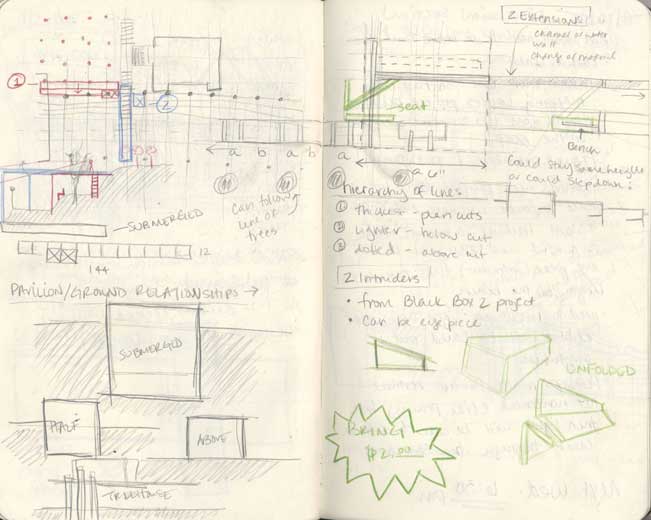 1
2
a b a b a
Can follow
line of
trees
SUBMERGED
12
144
PAVILION/GROUND RELATIONSHIPS →
SUBMERGED
HALF
ABOVE
TREEHOUSE
2 EXTENSIONS
channel of water
wall
change of material
seat
Bench
a 6"
Could stay same height
or could step down:
hierarchy of lines
① thickest - plan cuts
② lighter - below cut
③ dotted - above cut
2 Intruders
• from Black Box 2 project
• Can be eye piece
UNFOLDED
BRING
$2.00